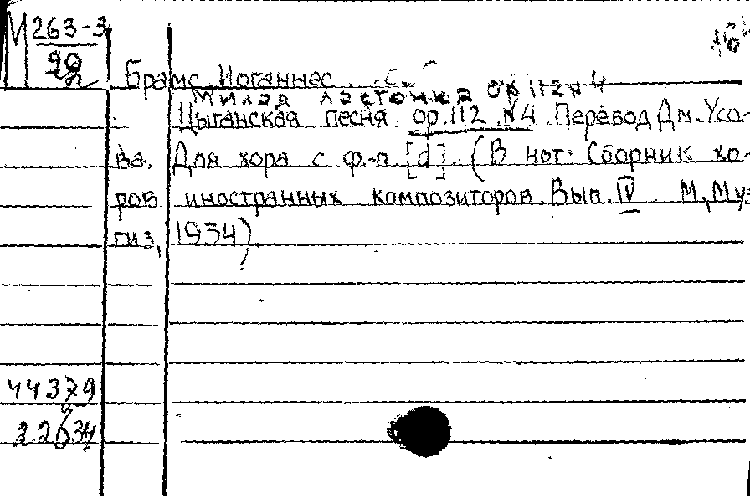 М 263-3
Брамс Иоганнес
Милая ласточка Op 112 N 4
Цыганская песня op. 112 N4. Перевод Дм. Усо-
ва. Для хора с ф.-п. [d]. (В нот: Сборник хо-
ров иностранных композиторов. Вып. IV. М., Муз-
гиз, 1934)
44379
22634